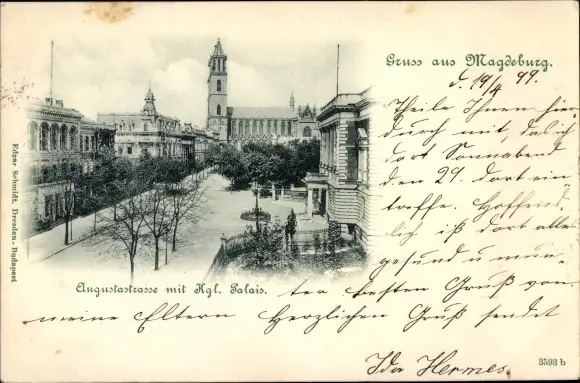 Gruss aus Magdeburg.
d. 19/4 99.
Theile Ihnen hier
durch mit, daß ich
dort Sonnabend
den 29. dort ein
treffe. Hoffentlich
ist dort alles
gesund u mun-
ter besten Gruß von
meine Eltern Herzlichen Gruß sendet
Ida Hermes
Augustastrasse mit Kgl. Palais.
Edgar Schmidt, Dresden-Budapest
3593 b